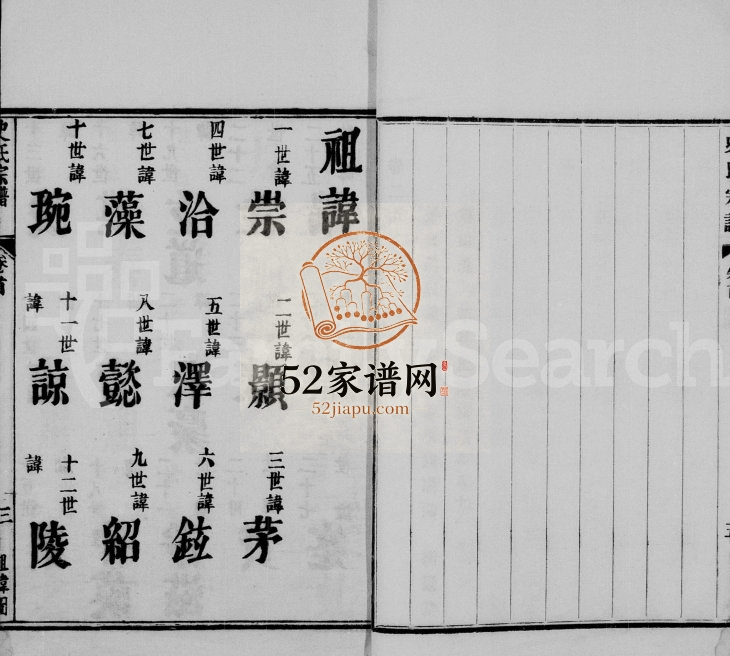 祖諱
一世諱 崇
二世諱 顯
三世諱 茅
四世諱 洽
五世諱 澤
六世諱 鉉
七世諱 藻
八世諱 懿
九世諱 紹
十世諱 琬
十一世諱 諒
十二世諱 陵
氏宗譜
卷首
三
祖諱圖
52家谱网
52jiapu.com
FamilySearch